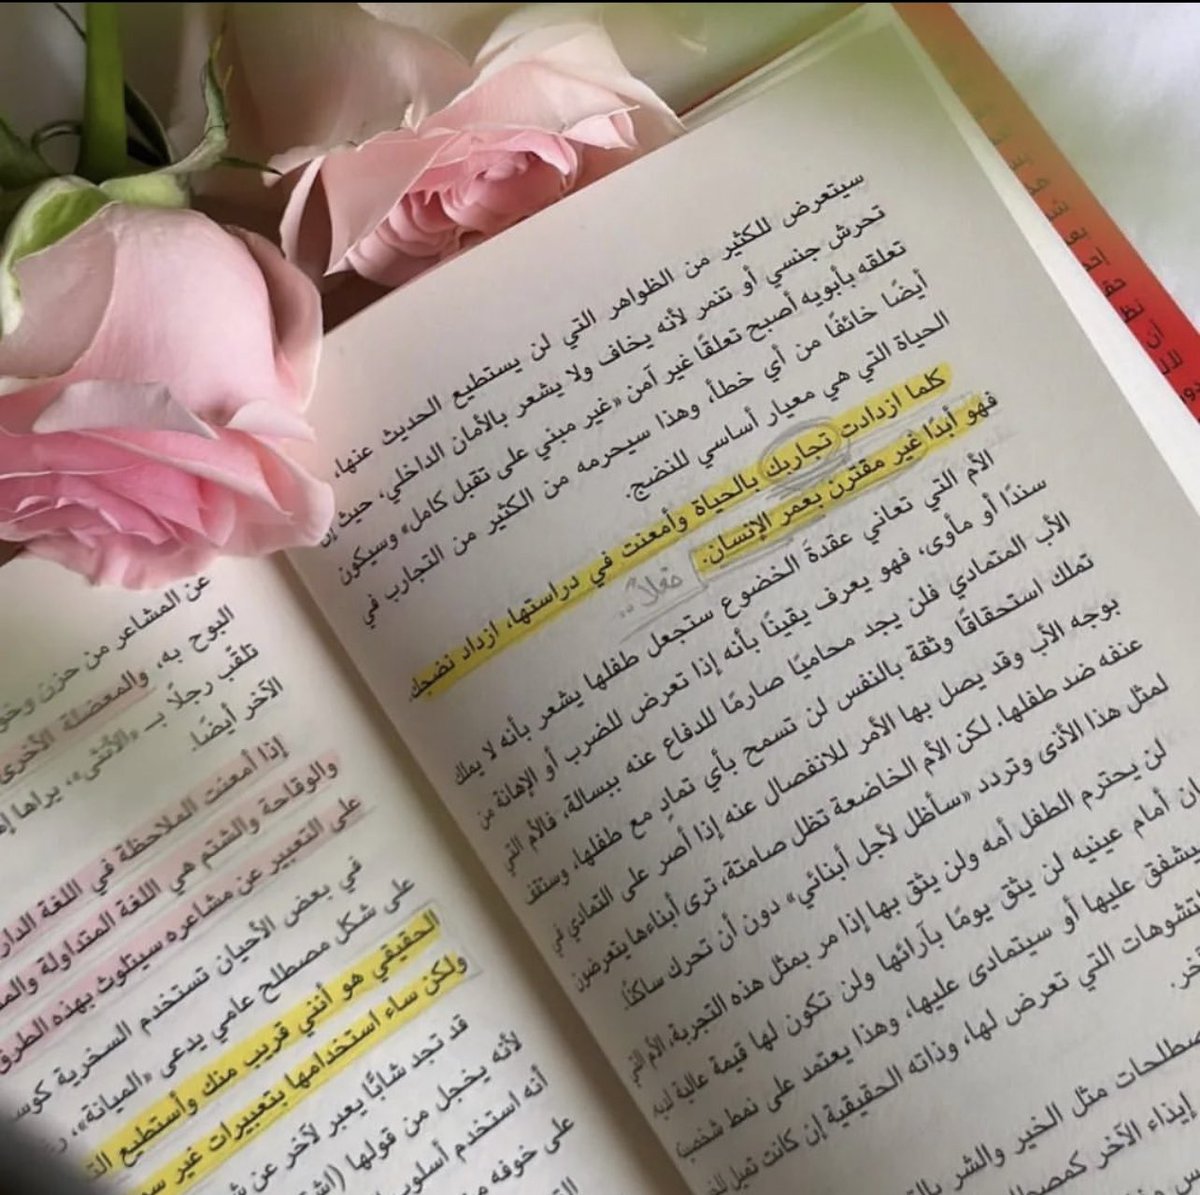 سيتعرض للكثير من الظواهر التي لن يستطيع الحديث عنها،
تحرش جنسي أو تنمر لأنه يخاف ولا يشعر بالأمان الداخلي، حيث إن
تعلقه بأبويه أصبح تعلقًا غير آمن «غير مبني على تقبل كامل» وسيكون
أيضًا خائفًا من أي خطأ، وهذا سيحرمه من الكثير من التجارب في
الحياة التي هي معيار أساسي للنضج.
كلما ازدادت تجاربك بالحياة وأمعنت في دراستها، ازداد نضجك
فهو أبدًا غير مقترن بعمر الإنسان.
فعلاً..
الأم التي تعاني عقدة الخضوع ستجعل طفلها يشعر بأنه لا يملك
سندًا أو مأوى، فهو يعرف يقينًا بأنه إذا تعرض للضرب أو الإهانة من
الأب المتمادي فلن يجد محاميًا صارمًا للدفاع عنه ببسالة، فالأم التي
تملك استحقاقًا وثقة بالنفس لن تسمح بأي تمادٍ مع طفلها، وستقف
بوجه الأب وقد يصل بها الأمر للانفصال عنه إذا أصر على التمادي في
عنفه ضد طفلها. لكن الأم الخاضعة تظل صامتة، ترى أبناءها يتعرضون
لمثل هذا الأذى وتردد «سأظل لأجل أبنائي» دون أن تحرك ساكنًا.
لن يحترم الطفل أمه ولن يثق بها إذا مر بمثل هذه التجربة، الأم التي
أمام عينيه لن يثق يومًا بآرائها ولن تكون لها قيمة عالية لديه
سيشفق عليها أو سيتمادى عليها، وهذا يعتمد على نمط شخصية
التي تعرض لها، وذاته الحقيقية إن كانت تميل
مثل الخير والشر
إيذاء الآخر
عن المشاعر من حزن
البوح به، والمعضلة الأخرى
تلقّب رجلًا بـ «الأنثى»، يراها
الآخر أيضًا.
إذا أمعنت الملاحظة في اللغة
والوقاحة والشتم هي اللغة المتداولة
على التعبير عن مشاعره سيتلوث بهذه الطرق
في بعض الأحيان تستخدم السخرية
على شكل مصطلح عامي يدعى «الميانة»،
الحقيقي هو أنني قريب منك وأستطيع
ولكن ساء استخدامها بتعبيرات غير
قد تجد شابًّا يعبر لآخر عن
لأنه يخجل من قولها
أنه استخدم
على خوفه